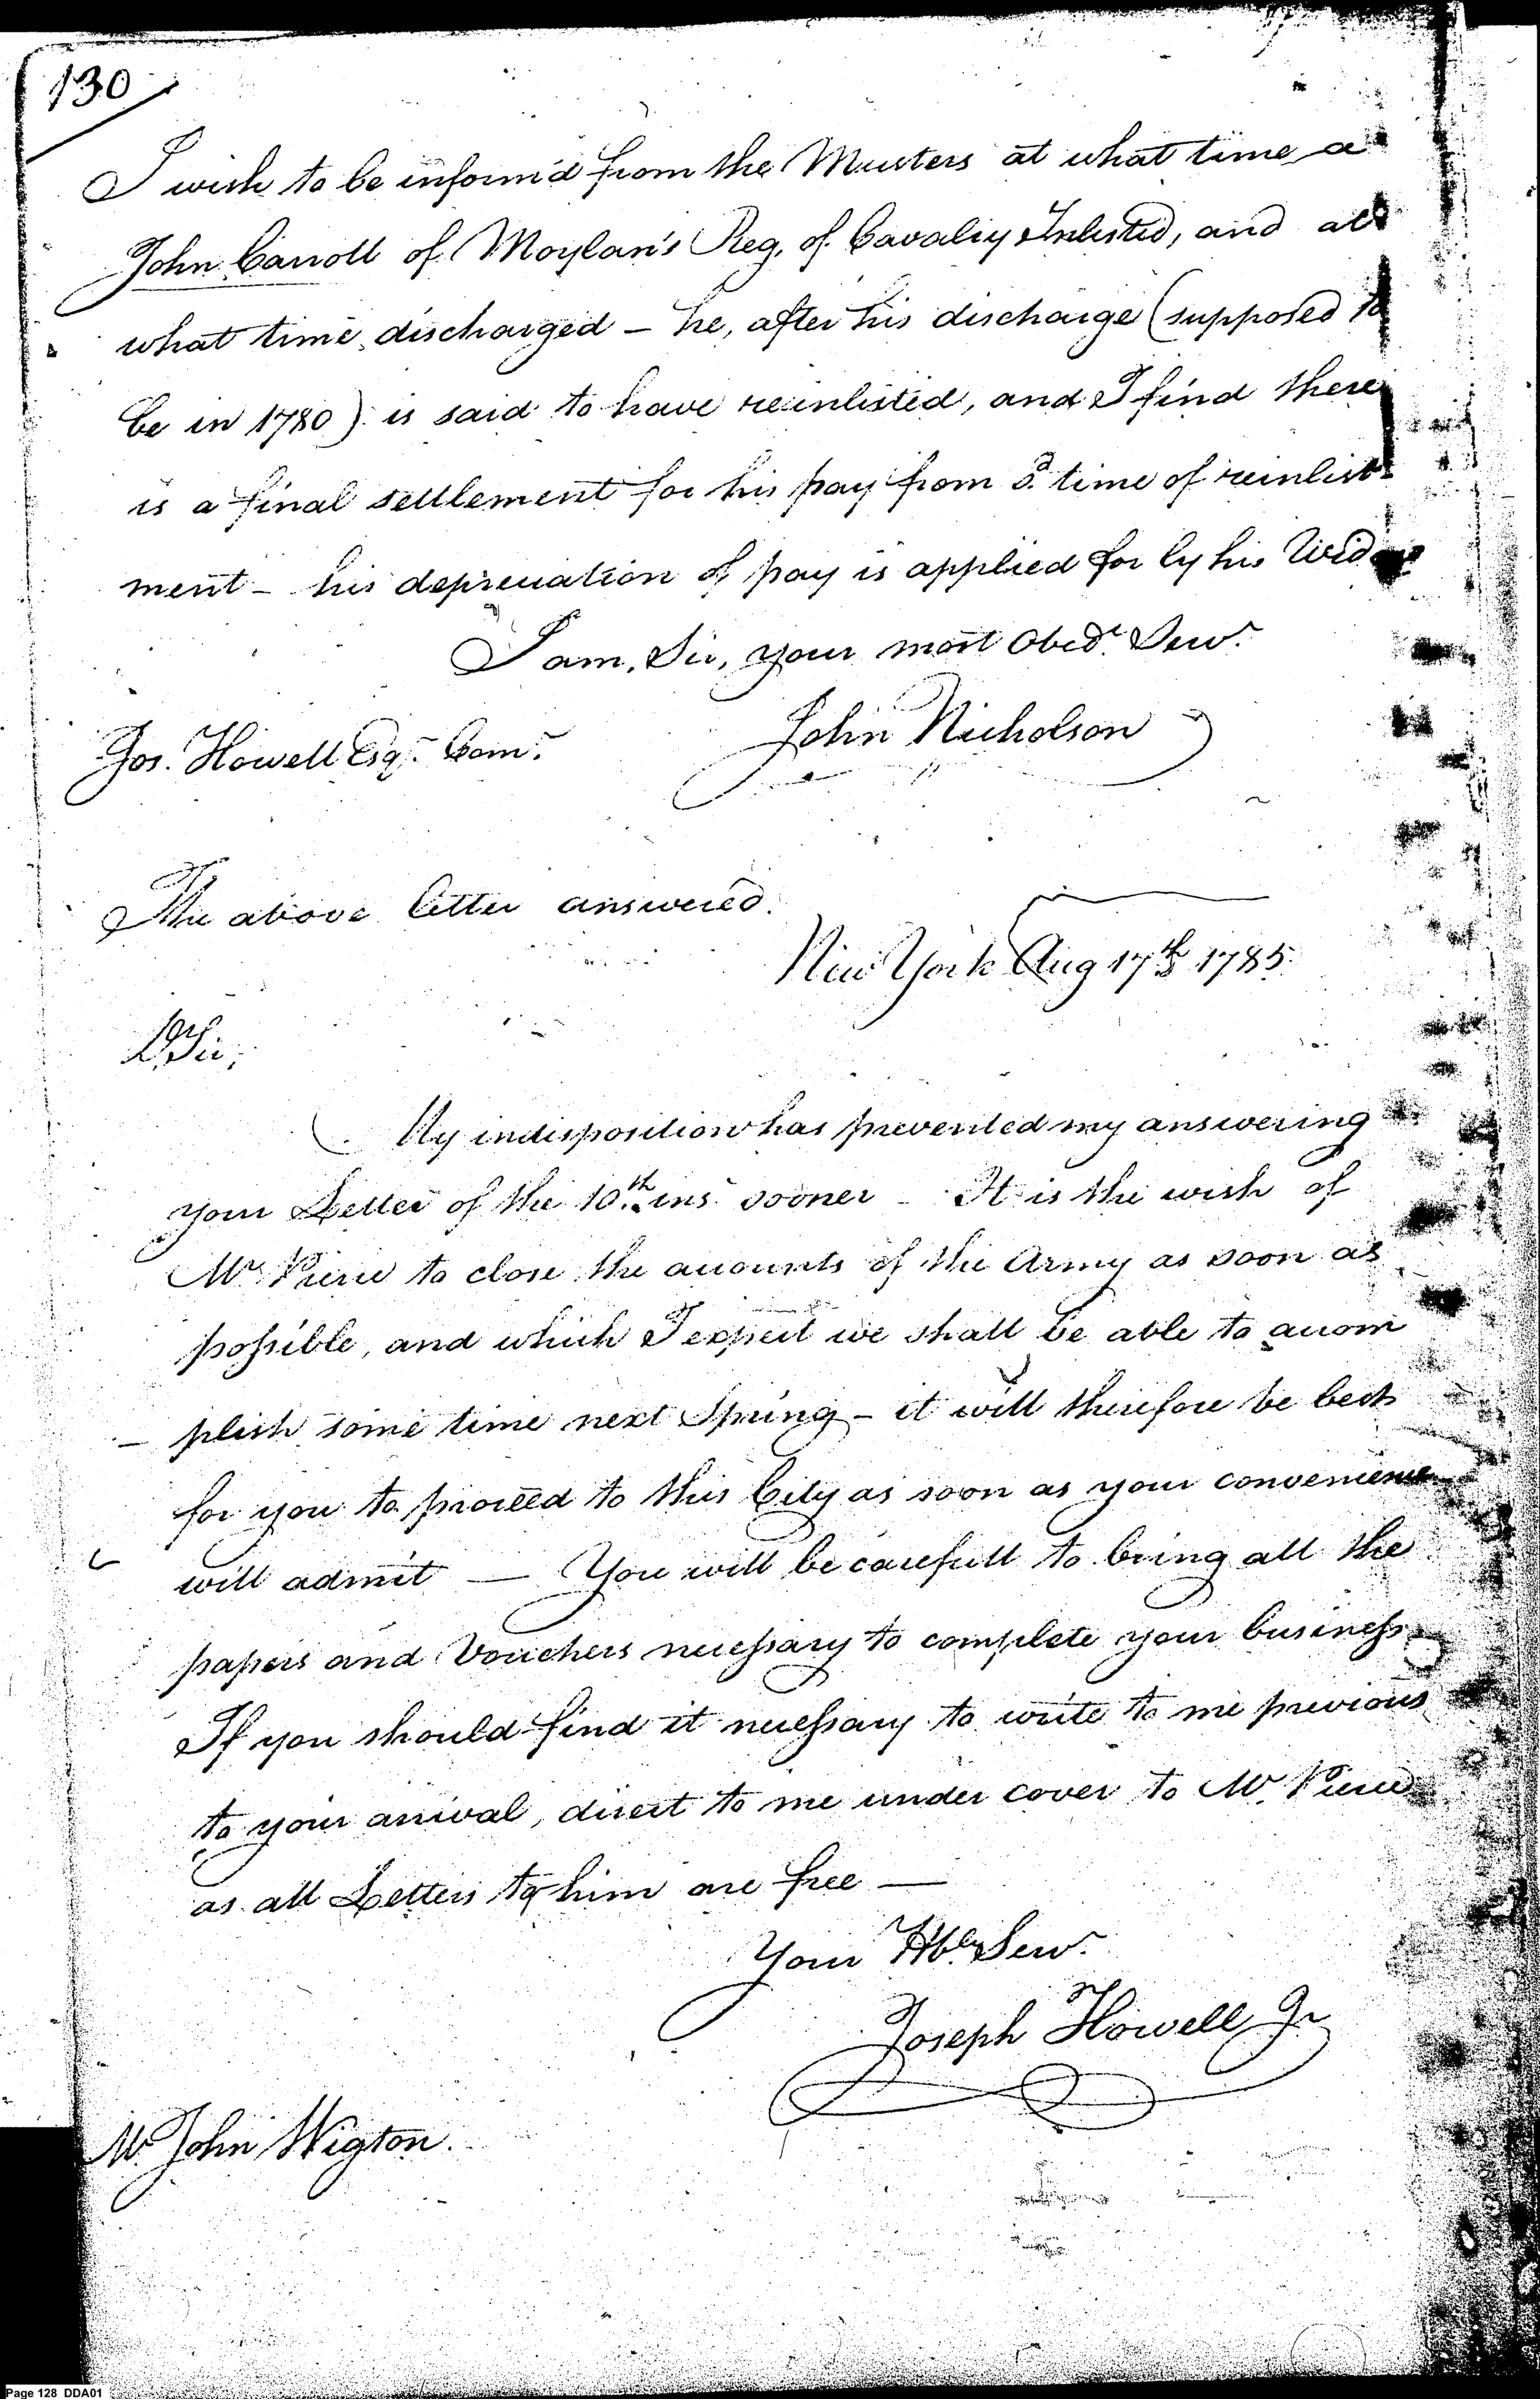 130
I wish to be inform'd from the Musters at what time a
John Carroll of Moylan's Reg. of Cavalry Inlisted, and at
what time discharged - he, after his discharge (supposed to
be in 1780) is said to have reinlisted, and I find there
is a final settlement for his pay from sd. time of reinlist-
ment - his depreciation of pay is applied for by his Widow
I am, Sir, your most Obedt. Servt.
John Nicholson
Jos. Howell Esqr. Comr.
The above letter answered.
New York Aug 17th 1785.
Sir,
My indisposition has prevented my answering
your Letter of the 10th. ins. sooner - It is the wish of
Mr. Pierce to close the accounts of the Army as soon as
possible, and which I expect we shall be able to accom
- plish some time next Spring - it will therefore be best
for you to proceed to this City as soon as your convenience
will admit - You will be carefull to bring all the
papers and Vouchers necessary to complete your business
If you should find it necessary to write to me previous
to your arrival, direct to me under cover to Mr. Pierce
as all Letters to him are free -
Your Hble Servt.
Joseph Howell Jr
Mr. John Wigton.
Page 128 DDA01